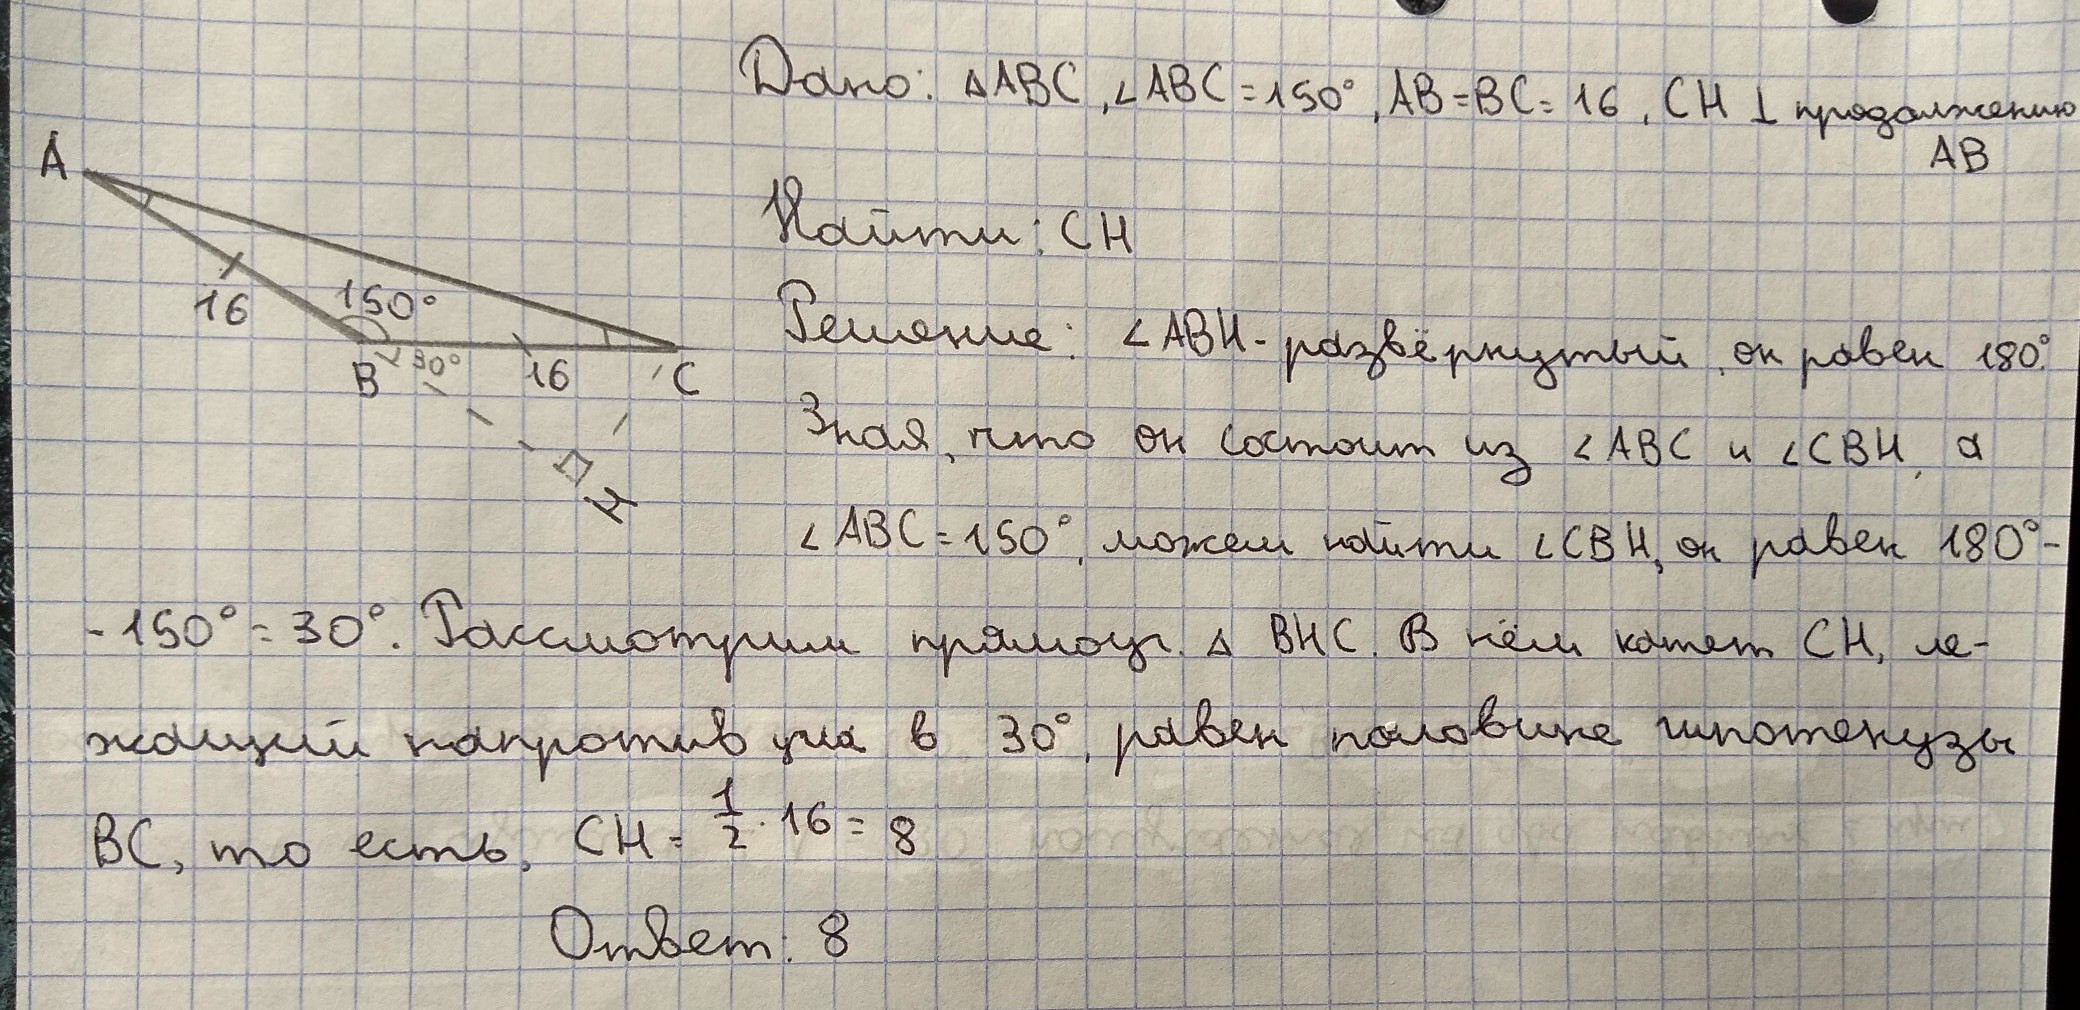 Дано: ΔABC, ∠ABC=150°, AB=BC=16, CH ⊥ продолжению
AB
Найти: CH
A
16
150°
B
30°
16
C
H
Решение: ∠ABH - развёрнутый, он равен 180°.
Зная, что он состоит из ∠ABC и ∠CBH, а
∠ABC=150°, можем найти ∠CBH, он равен 180°-
-150°=30°. Рассмотрим прямоуг. Δ BHC. В нём катет CH, ле-
жащий напротив угла в 30°, равен половине гипотенузы
BC, то есть, CH = 1/2 · 16 = 8
Ответ: 8